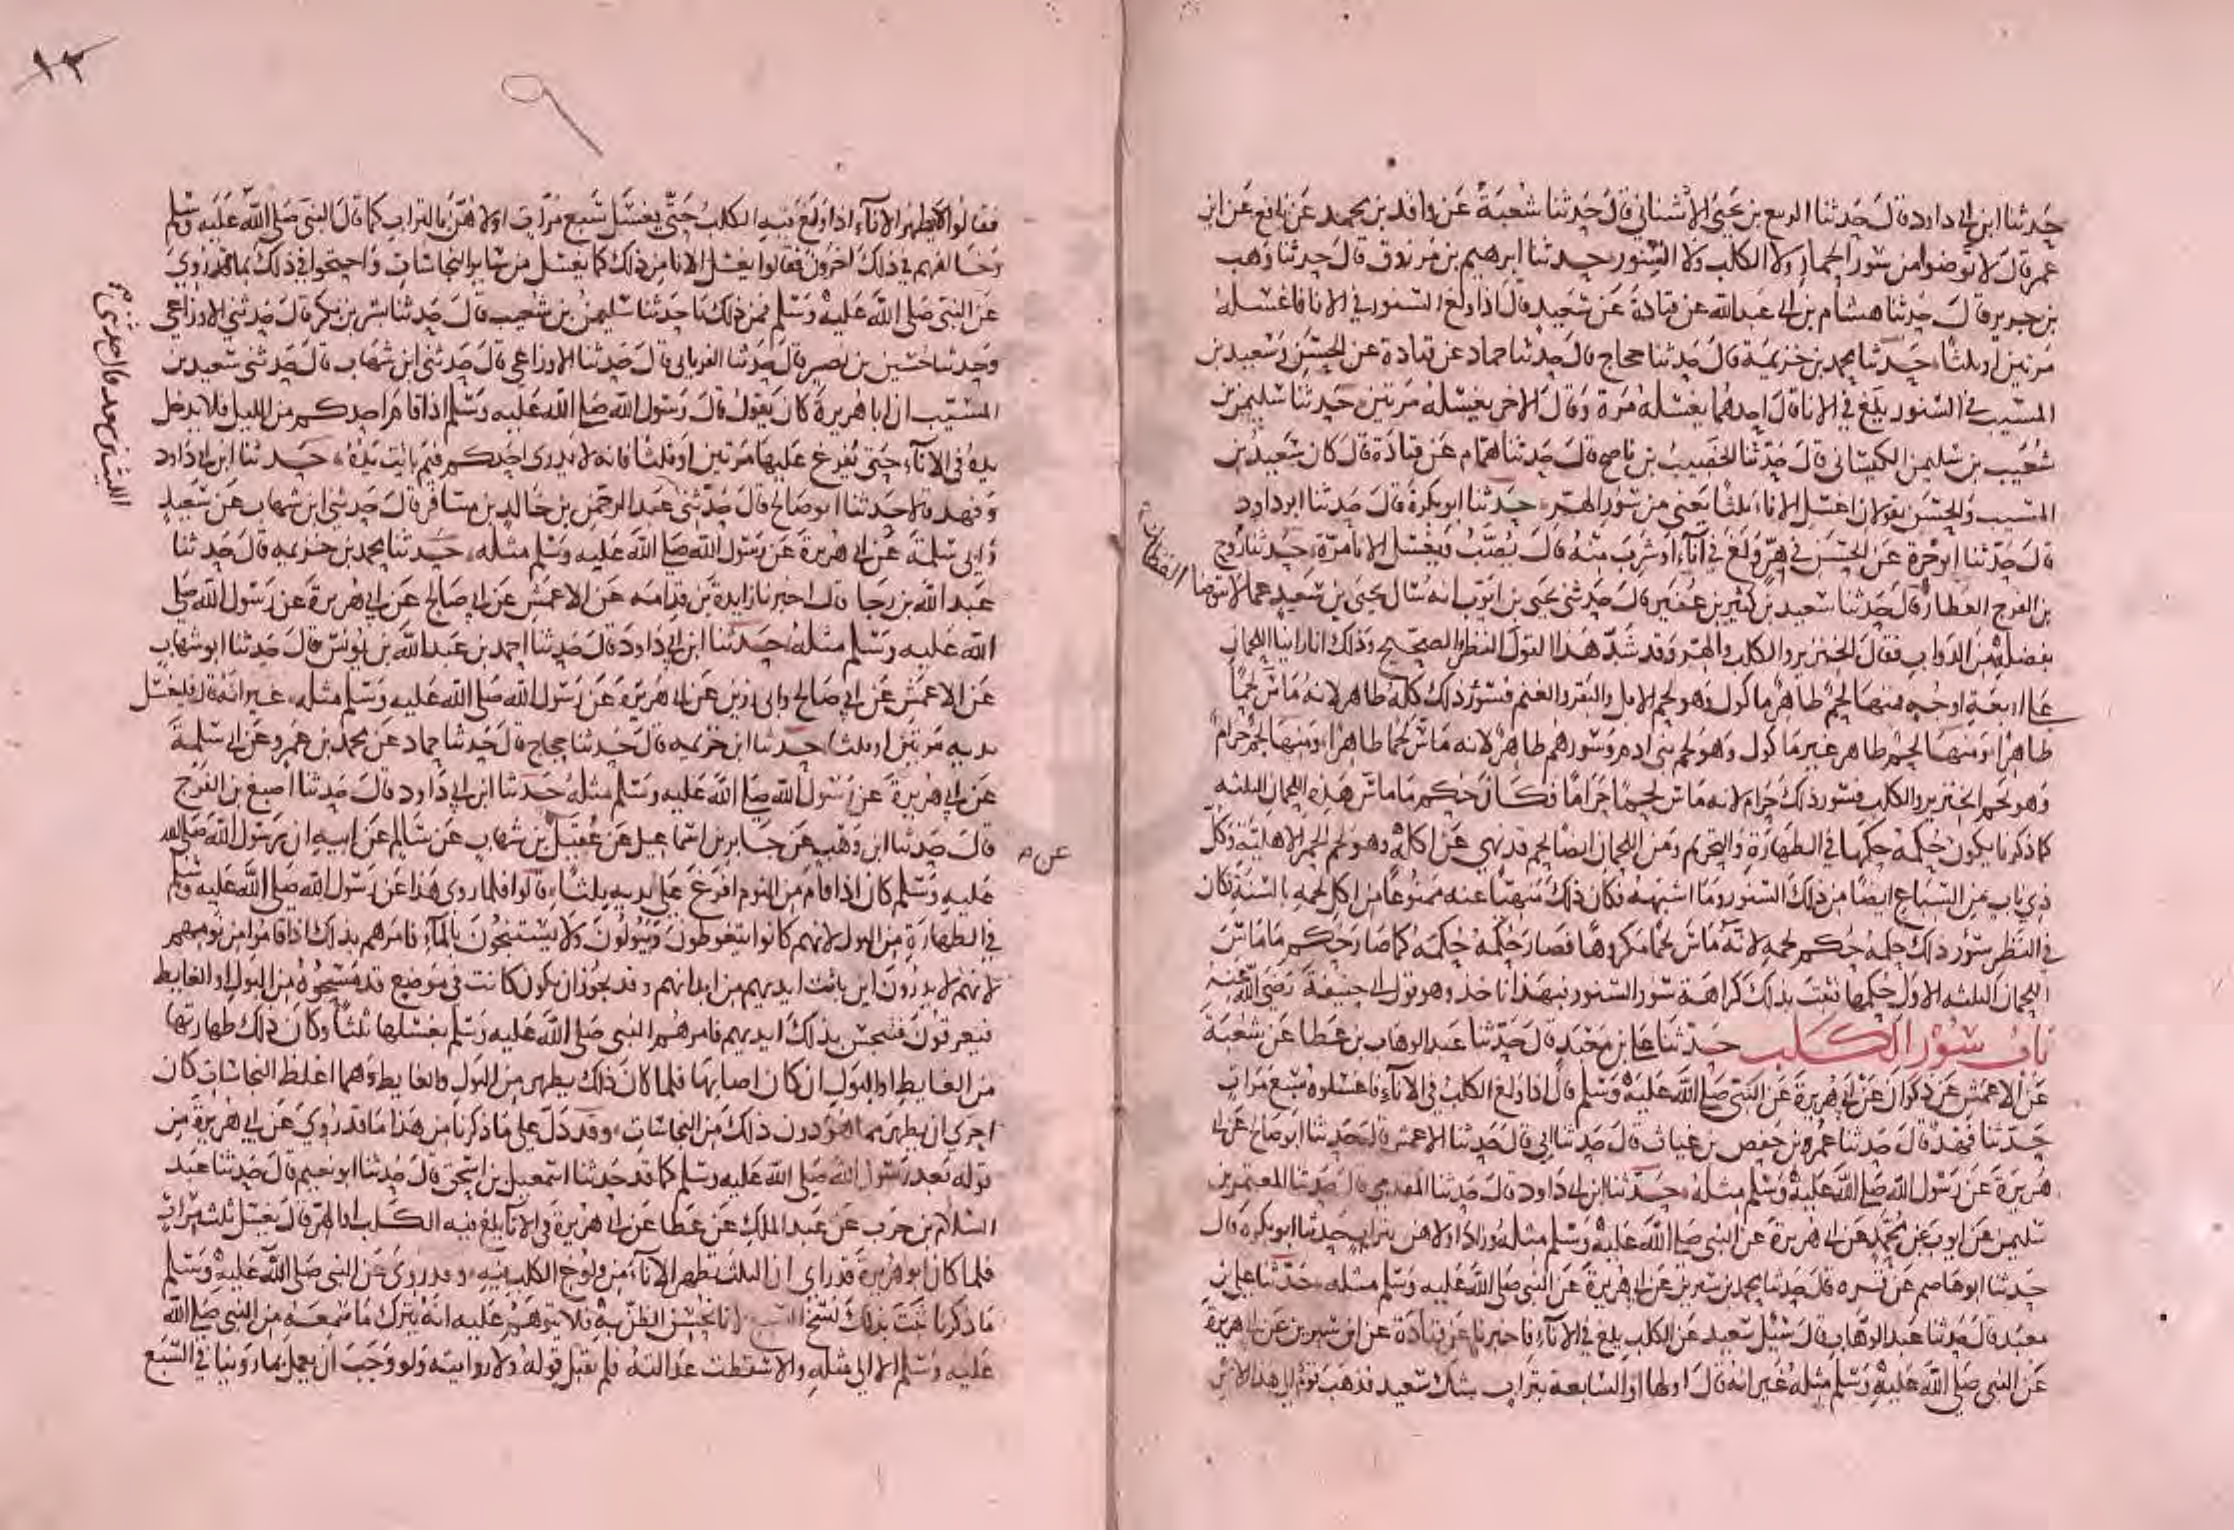 حدثنا ابن ابي داود قال حدثنا الربيع بن يحيى الاشناني قال حدثنا شعبة عن واقد بن محمد عن نافع عن ابن
عمر قال لا توضوا من سور الحمار ولا الكلب ولا السنور حدثنا ابرهيم بن مرزوق قال حدثنا وهب
بن جرير قال حدثنا هشام بن ابي عبد الله عن قتادة عن سعيد قال اذا ولغ السنور في الانا فاغسله
مرتين او ثلثا حدثنا محمد بن خزيمة قال حدثنا حجاج قال حدثنا حماد عن قتادة عن الحسن وسعيد بن
المسيب في السنور يلغ في الانا قال احدهما يغسله مرة وقال الاخر يغسله مرتين حدثنا سليمن بن
شعيب بن سليمن الكيساني قال حدثنا الخصيب بن ناصح قال حدثنا همام عن قتادة قال كان سعيد بن
المسيب والحسن يقولان اغسل الاناء ثلثا يعني من سور الهر حدثنا ابو بكرة قال حدثنا ابو داود
قال حدثنا ابو حرة عن الحسن في هر ولغ في اناء او شرب منه قال يصب ويغسل الانا مرة حدثنا روح
بن الفرج القطان قال حدثنا سعيد بن كثير بن عفير قال حدثني يحيى بن ايوب انه سال يحيى بن سعيد عما لا يتوضا
القطان
بفضله من الدواب فقال الخنزير والكلب والهر وقد شد هذا القول النظر الصحيح وذلك انا راينا اللحمان
على اربعة اوجه فمنها لحم طاهر ماكول وهو لحم الابل والبقر والغنم فسور ذلك كله طاهر لانه ماس لحما
طاهرا ومنها لحم طاهر غير ماكول وهو لحم بني ادم وسورهم طاهر لانه ماس لحما طاهرا ومنها لحم حرام
وهو لحم الخنزير والكلب فسور ذلك حرام لانه ماس لحما حراما فكان حكم ما ماس هذه اللحمان الثلثه
كما ذكرنا يكون حكمه حكمها في الطهارة والتحريم ومن اللحمان ايضا لحم قد نهي عن اكله وهو لحم الحمر الاهلية وكل
ذي ناب من السباع ايضا من ذلك السنور وما اشبهه فكان ذلك منهيا عنه ممنوعا من اكل لحمه بالسنة وكان
في النظر سور ذلك حكمه حكم لحمه لانه ماس لحما مكروها فصار حكمه حكمه كما صار حكم ما ماس
اللحمان الثلثه الاول حكمها فثبت بذلك كراهة سور السنور فبهذا ناخذ وهو قول ابي حنيفة رضي الله عنه
باب سور الكلب حدثنا علي بن معبد قال حدثنا عبد الوهاب بن عطا عن شعبة
عن الاعمش عن ذكوان عن ابي هريرة عن النبي صلى الله عليه وسلم قال اذا ولغ الكلب في الاناء فاغسلوه سبع مرات
حدثنا فهد قال حدثنا عمر بن حفص بن غياث قال حدثنا ابي قال حدثنا الاعمش قال حدثنا ابو صالح عن ابي
هريرة عن رسول الله صلى الله عليه وسلم مثله حدثنا ابن ابي داود قال حدثنا المقدمي قال حدثنا المعتمر بن
سليمن عن ايوب عن محمد عن ابي هريرة عن النبي صلى الله عليه وسلم مثله وزاد اولاهن بتراب حدثنا ابو بكرة قال
حدثنا ابو عاصم عن قره قال حدثنا محمد بن سيرين عن ابي هريرة عن النبي صلى الله عليه وسلم مثله حدثنا علي بن
معبد قال حدثنا عبد الوهاب قال سئل سعيد عن الكلب يلغ في الاناء فاخبرنا عن قتادة عن ابن سيرين عن ابي هريرة
عن النبي صلى الله عليه وسلم مثله غير انه قال اولها او السابعة بتراب شك سعيد فذهب قوم الى هذا الاثر
١٣
٩
فقالوا لا يطهر الاناء اذا ولغ فيه الكلب حتى يغسل سبع مرات اولاهن بالتراب كما قال النبي صلى الله عليه وسلم
وخالفهم في ذلك اخرون فقالوا يغسل الانا من ذلك كما يغسل من ساير النجاسات واحتجوا في ذلك بما قد روي
عن النبي صلى الله عليه وسلم فمن ذلك ما حدثنا سليمن بن شعيب قال حدثنا بشر بن بكر قال حدثني الاوزاعي
وحدثنا حسين بن نصر قال حدثنا الفريابي قال حدثنا الاوزاعي قال حدثني ابن شهاب قال حدثني سعيد بن
المسيب ان ابا هريرة كان يقول قال رسول الله صلى الله عليه وسلم اذا قام احدكم من الليل فلا يدخل
يده في الاناء حتى يفرغ عليها مرتين او ثلثا فانه لا يدري احدكم فيم باتت يده حدثنا ابن ابي داود
وفهد قالا حدثنا ابو صالح قال حدثني عبد الرحمن بن خالد بن مسافر قال حدثني ابن شهاب عن سعيد
الليث بن سعد قال حدثني
وابي سلمة عن ابي هريرة عن رسول الله صلى الله عليه وسلم مثله حدثنا محمد بن خزيمه قال حدثنا
عبد الله بن رجا قال اخبرنا زايدة بن قدامه عن الاعمش عن ابي صالح عن ابي هريرة عن رسول الله صلى
الله عليه وسلم مثله حدثنا ابن ابي داود قال حدثنا احمد بن عبد الله بن يونس قال حدثنا ابو شهاب
عن الاعمش عن ابي صالح وابي رزين عن ابي هريرة عن رسول الله صلى الله عليه وسلم مثله غير انه قال فليغسل
يديه مرتين او ثلثا حدثنا ابن خزيمه قال حدثنا حجاج قال حدثنا حماد عن محمد بن عمرو عن ابي سلمة
عن ابي هريرة عن رسول الله صلى الله عليه وسلم مثله حدثنا ابن ابي داود قال حدثنا اصبغ بن الفرج
قال حدثنا ابن وهب عن جابر بن اسماعيل عن عقيل بن شهاب عن سالم عن ابيه ان رسول الله صلى الله
عن
عليه وسلم كان اذا قام من النوم افرغ على يديه ثلثا قالوا فلما روي هذا عن رسول الله صلى الله عليه وسلم
في الطهارة من البول لانهم كانوا يتغوطون ويبولون ولا يستنجون بالماء فامرهم بذلك اذا قاموا من نومهم
لانهم لا يدرون اين باتت ايديهم من ابدانهم وقد يجوز ان يكون كانت في موضع قد مسحوه من البول او الغايط
فيعرقون فتنجس بذلك ايديهم فامرهم النبي صلى الله عليه وسلم بغسلها ثلثا وكان ذلك طهارتها
من الغايط او البول ان كان اصابها فلما كان ذلك يطهر من البول والغايط وهما اغلظ النجاسات كان
احرى ان يطهر بما هو دون ذلك من النجاسات وقد دل على ما ذكرنا من هذا ما قد روي عن ابي هريرة من
قوله بعد رسول الله صلى الله عليه وسلم كما قد حدثنا اسمعيل بن اسحق قال حدثنا ابو نعيم قال حدثنا عبد
السلام بن حرب عن عبد الملك عن عطا عن ابي هريرة في الاناء يلغ فيه الكلب او الهر قال يغسل ثلث مرات
فلما كان ابو هريرة قد راى ان الثلث تطهر الاناء من ولوغ الكلب فيه وقد روى عن النبي صلى الله عليه وسلم
ما ذكرنا ثبت بذلك نسخ السبع لانا نحسن الظن به فلا يتوهم عليه انه يترك ما سمعه من النبي صلى الله
عليه وسلم الا الى مثله والا سقطت عدالته فلم يقبل قوله ولا روايته ولو وجب ان يعمل بما روينا في السبع